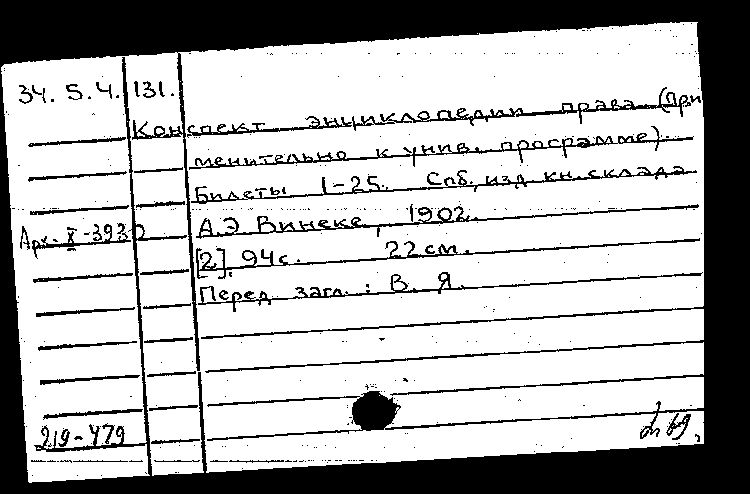 34. 5. 4. 131.
Конспект энциклопедии права (При
менительно к унив. программе).
Билеты 1-25. Спб, изд. кн. склада
А.Э. Винеке, 1902.
Арх. X-3930
[2], 94с. 22 см.
Перед загл.: В. Я.
219-479